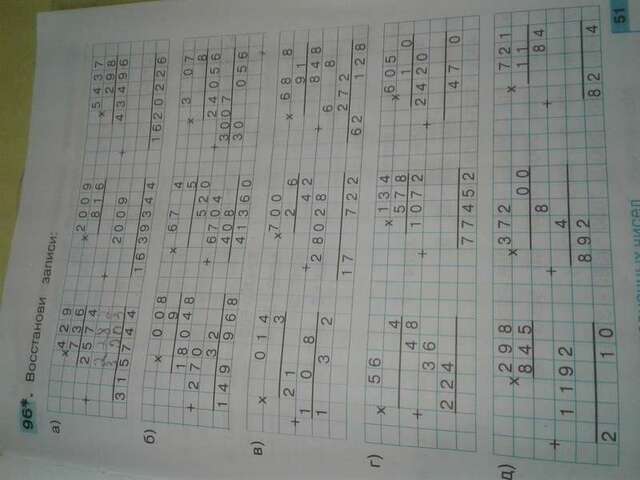 96*. Восстанови записи:
а)
× 429
736
+ 2574
3003
315744
× 2009
816
+
2009
1639344
× 5437
298
+ 43496
1620226
б)
× 008
9
18048
+ 270
32
149 968
× 67 4
5
520
+ 6704
408
41360
× 3 07
8
+ 24056
3007
30 056
в)
× 014
3
+ 21
1 0 8
1 3 2
× 700
2 6
+ 42
28028
17 722
× 68 8
91
+ 848
6 8
272
62 128
г)
× 56
4
+ 48
36
224
× 134
578
+ 1072
77452
× 605
1 0
+ 2420
47 0
д)
× 298
845
+
1192
2 10
× 372
00
+ 8
4
892
× 721
11
+ 84
82 4
51